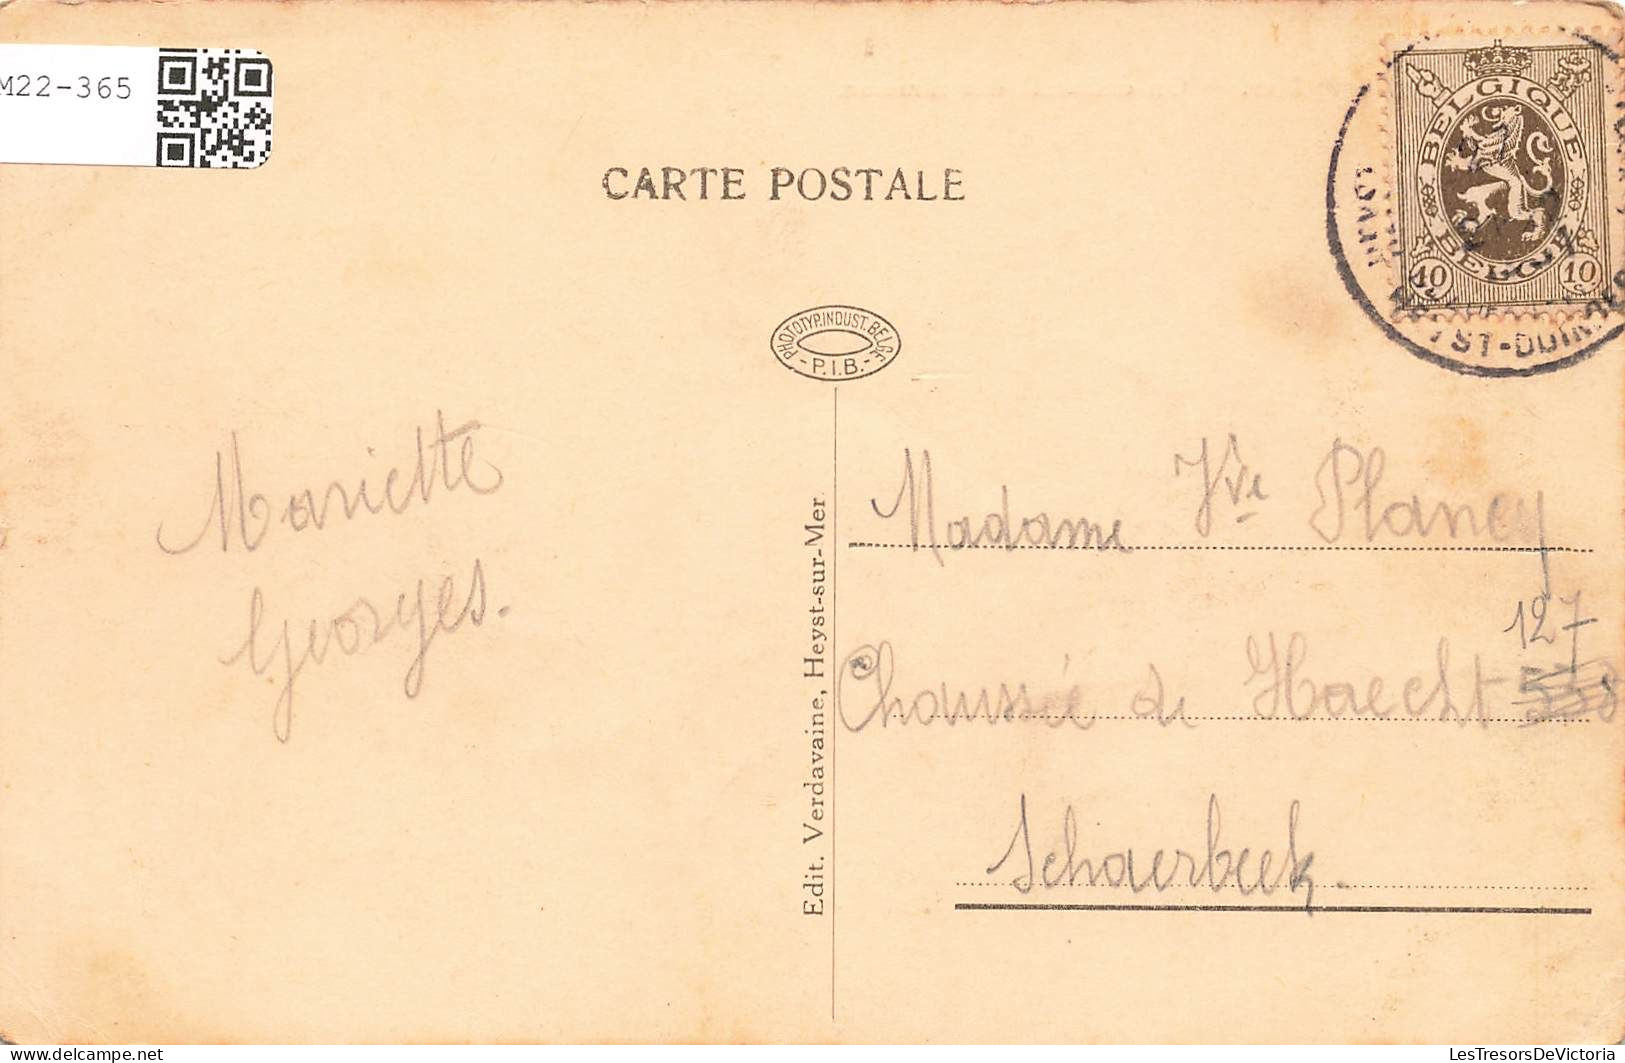 M22-365
CARTE POSTALE
BELGIQUE
BELGIË
10 10
ST-DUIN
PHOTOTYP.INDUST.BELGE
- P.I.B. -
Mariette
Georges.
Edit. Verdavaine, Heyst-sur-Mer
Madame Vve Plancy
127
Chaussée de Haecht
Schaerbeek.
LesTresorsDeVictoria